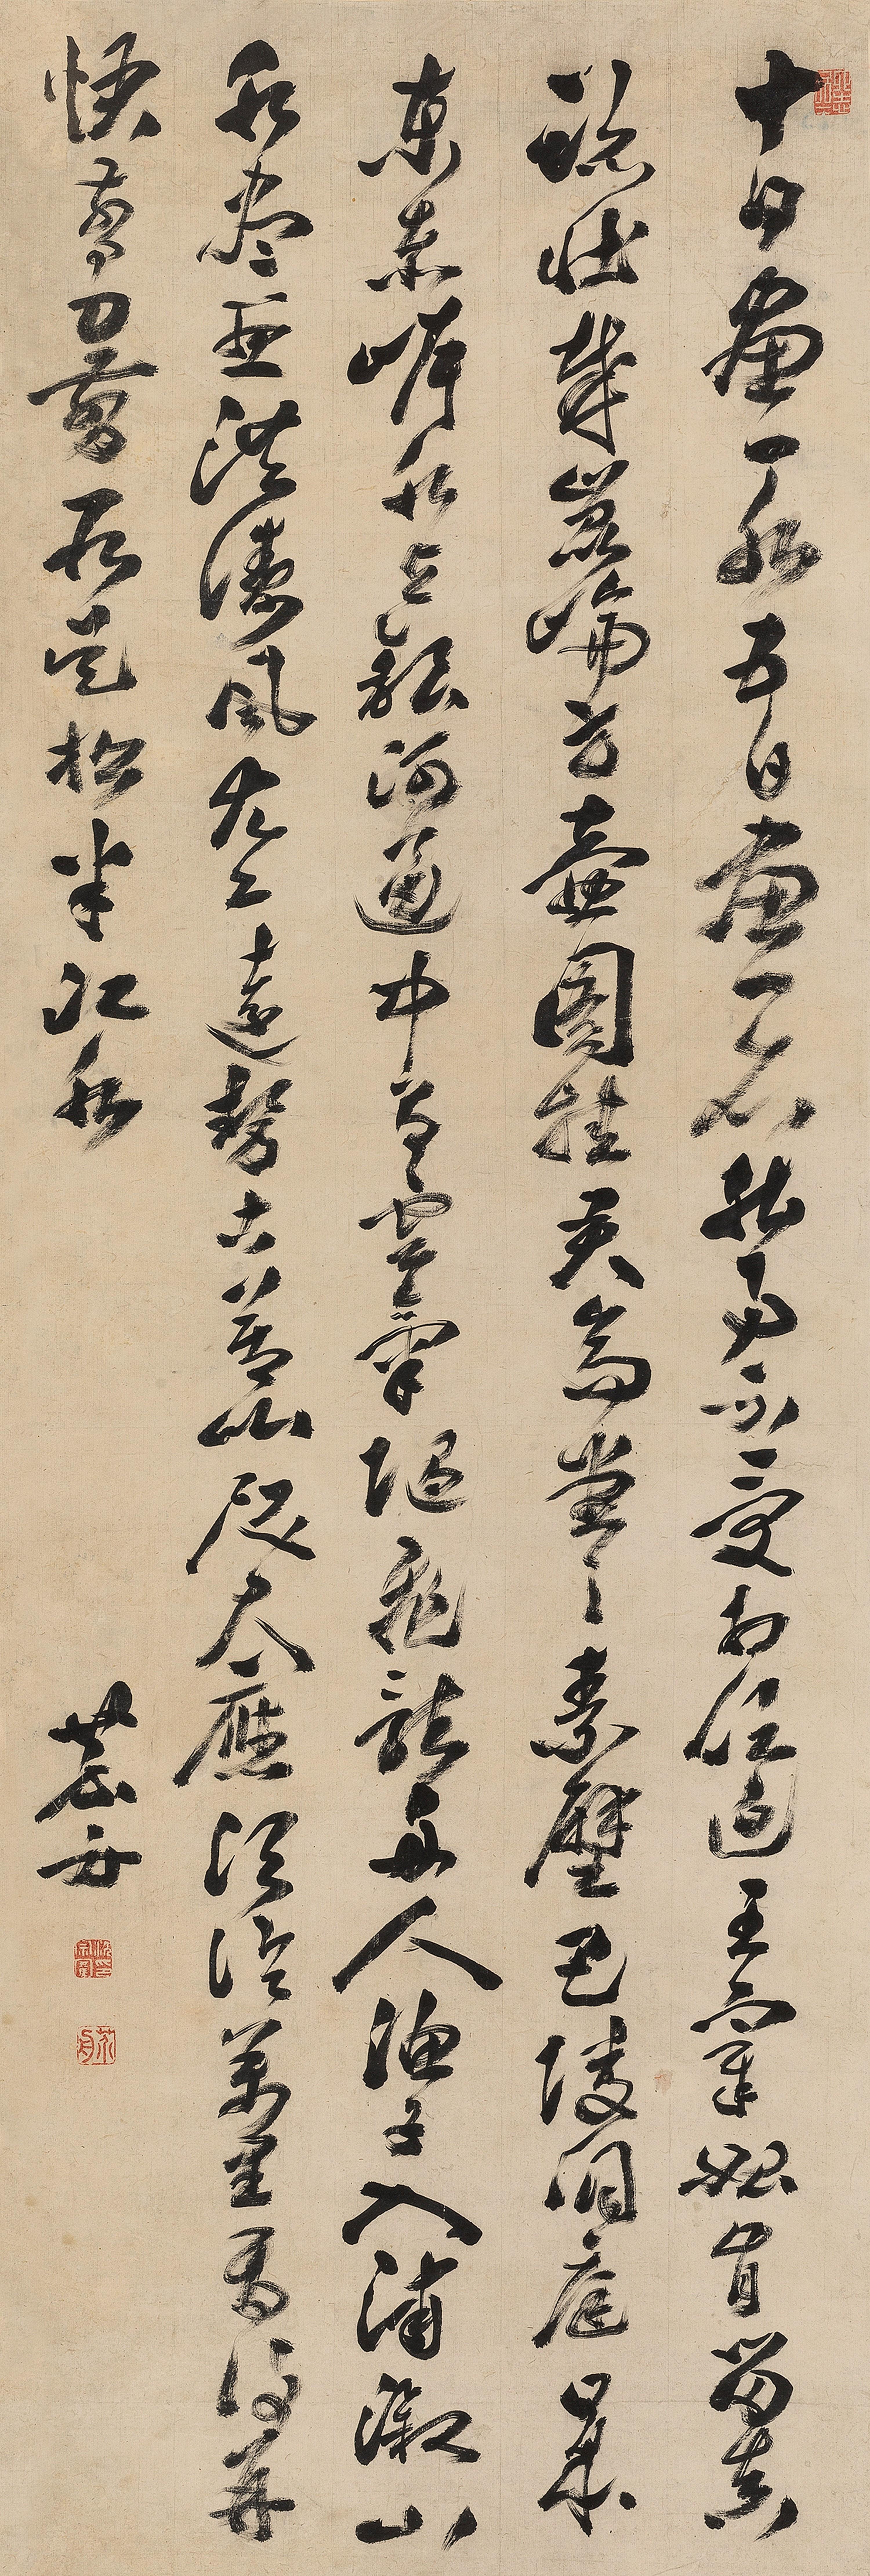 十日畫一水五日畫一石能事不受相促迫王宰始肯留真
跡壯哉崑崙方壺圖挂君高堂之素壁巴陵洞庭日本
東赤岸水与銀河通中有雲氣隨飛龍舟人漁子入浦漵山
木盡亞洪濤風尤工遠勢古莫比咫尺應須論萬里焉得并
快剪刀剪取吳松半江水